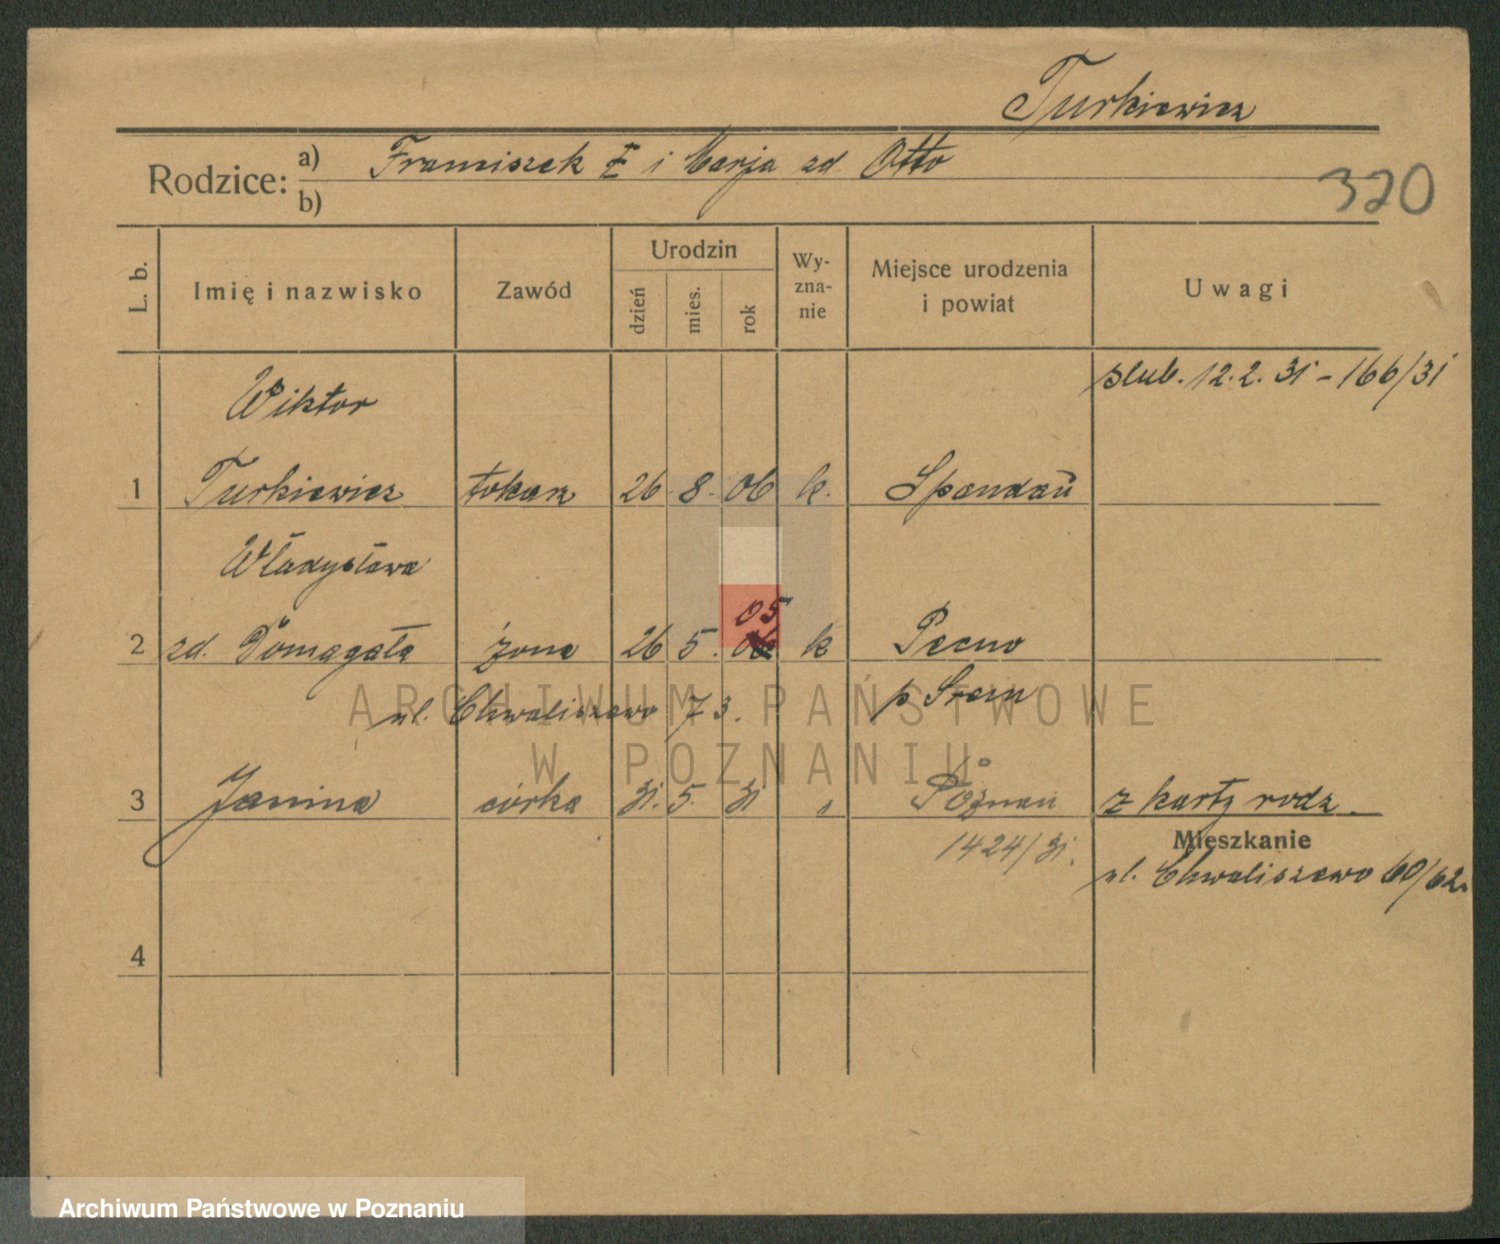 Turkiewicz
Rodzice: a) Franciszek i Marja zd. Otto
b)
320
L. b. Imię i nazwisko Zawód Urodzin dzień mies. rok Wy- zna- nie Miejsce urodzenia i powiat Uwagi
Wiktor ślub. 12.2.31 - 166/31
1 Turkiewicz tokarz 26. 8. 06 k. Spandau
Władysława
05
2 zd. Domagała żona 26 5. 06 k Pecno
ul. Chwaliszewo 73. p. Śrem
3 Janina córka 31. 5. 31 " Poznań z karty rodz.
1424/31. Mieszkanie
ul. Chwaliszewo 60/62.
4
ARCHIWUM PAŃSTWOWE
W POZNANIU
Archiwum Państwowe w Poznaniu